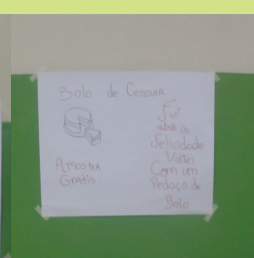 Bolo de Cenoura
Amostra
Grátis
Foi
Felicidade
Voltei
Com um
Pedaço de
Bolo